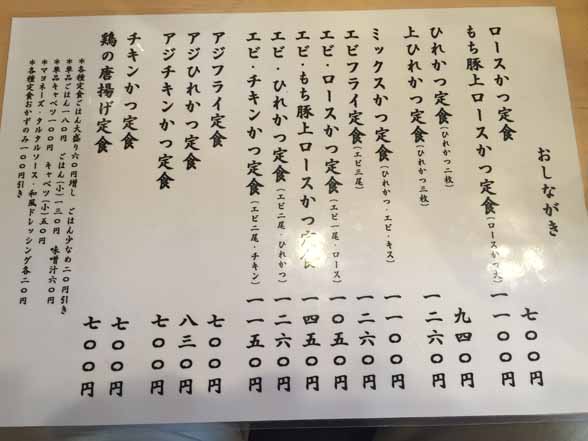 おしながき
ロースかつ定食 七〇〇円
もち豚上ロースかつ定食(ロースかつ大) 一一〇〇円
ひれかつ定食(ひれかつ二枚) 九四〇円
上ひれかつ定食(ひれかつ三枚) 一二六〇円
ミックスかつ定食(ひれかつ・エビ・キス) 一一〇〇円
エビフライ定食(エビ三尾) 一二六〇円
エビ・ロースかつ定食(エビ一尾・ロース) 一〇五〇円
エビ・もち豚上ロースかつ定食 一四五〇円
エビ・ひれかつ定食(エビ二尾・ひれかつ) 一二六〇円
エビ・チキンかつ定食(エビ二尾・チキン) 一一五〇円
アジフライ定食 七〇〇円
アジひれかつ定食 八三〇円
アジチキンかつ定食 七〇〇円
チキンかつ定食 七〇〇円
鶏の唐揚げ定食 七〇〇円
*各種定食ごはん大盛り六〇円増し ごはん少なめ二〇円引き
*単品ごはん一八〇円 ごはん(小)一三〇円 味噌汁六〇円
*単品キャベツ一〇〇円 キャベツ(小)五〇円
*マヨネーズ・タルタルソース・和風ドレッシング各二〇円
*各種定食おかずのみ一〇〇円引き